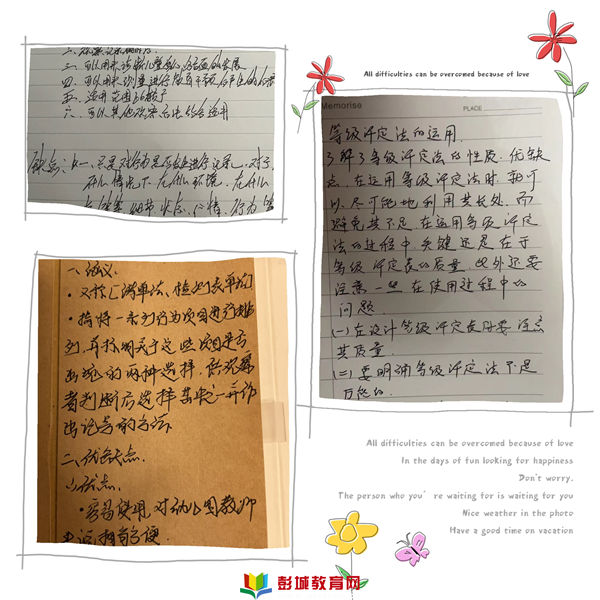 三、可以用来诊断儿童的
四、可以用来测量进行教育干预
五、运用范围比较广
六、可以其他观察方法结合运用
缺点：一、只是对行为是否出现进行记录，对于
在什么情况下、在什么环境、在什么
All difficulties can be overcomed because of love
Memorise
PLACE
等级评定法的运用
了解了等级评定法的性质、优缺
点，在运用等级评定法时，就可
以尽可能地利用其长处，而
避免其不足，在运用等级评定
法的过程中，关键还是在于
等级评定表的质量，此外还要
注意一些在使用过程中的
问题。
(一)在设计等级评定表时要注意
其质量
(二)要明确等级评定法不是
万能的
一、涵义
·又称清单法、检测表单法
·指将一系列行为项目进行排
列，并标明关于这些项目是否
出现的两种选择，供观察
者判断后选择其中之一并作
出记号的方法
二、优缺点
(1)优点：
·容易使用，对幼儿园教师
来说相当方便
All difficulties can be overcomed because of love
In the days of fun looking for happiness
Don't worry.
The person who you're waiting for is waiting for you
Nice weather in the photo
Have a good time on vacation
彭城教育网